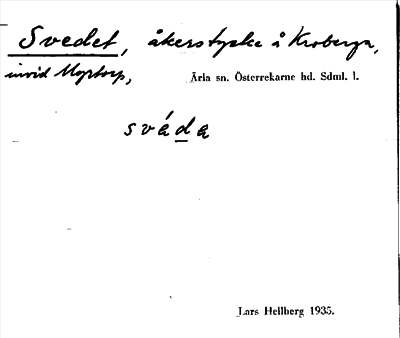 Svedet, åkerstycke å Kroberga,
invid Myrtorp,
Ärla sn. Österrekarne hd. Sdml. l.
sváda
Lars Hellberg 1935.